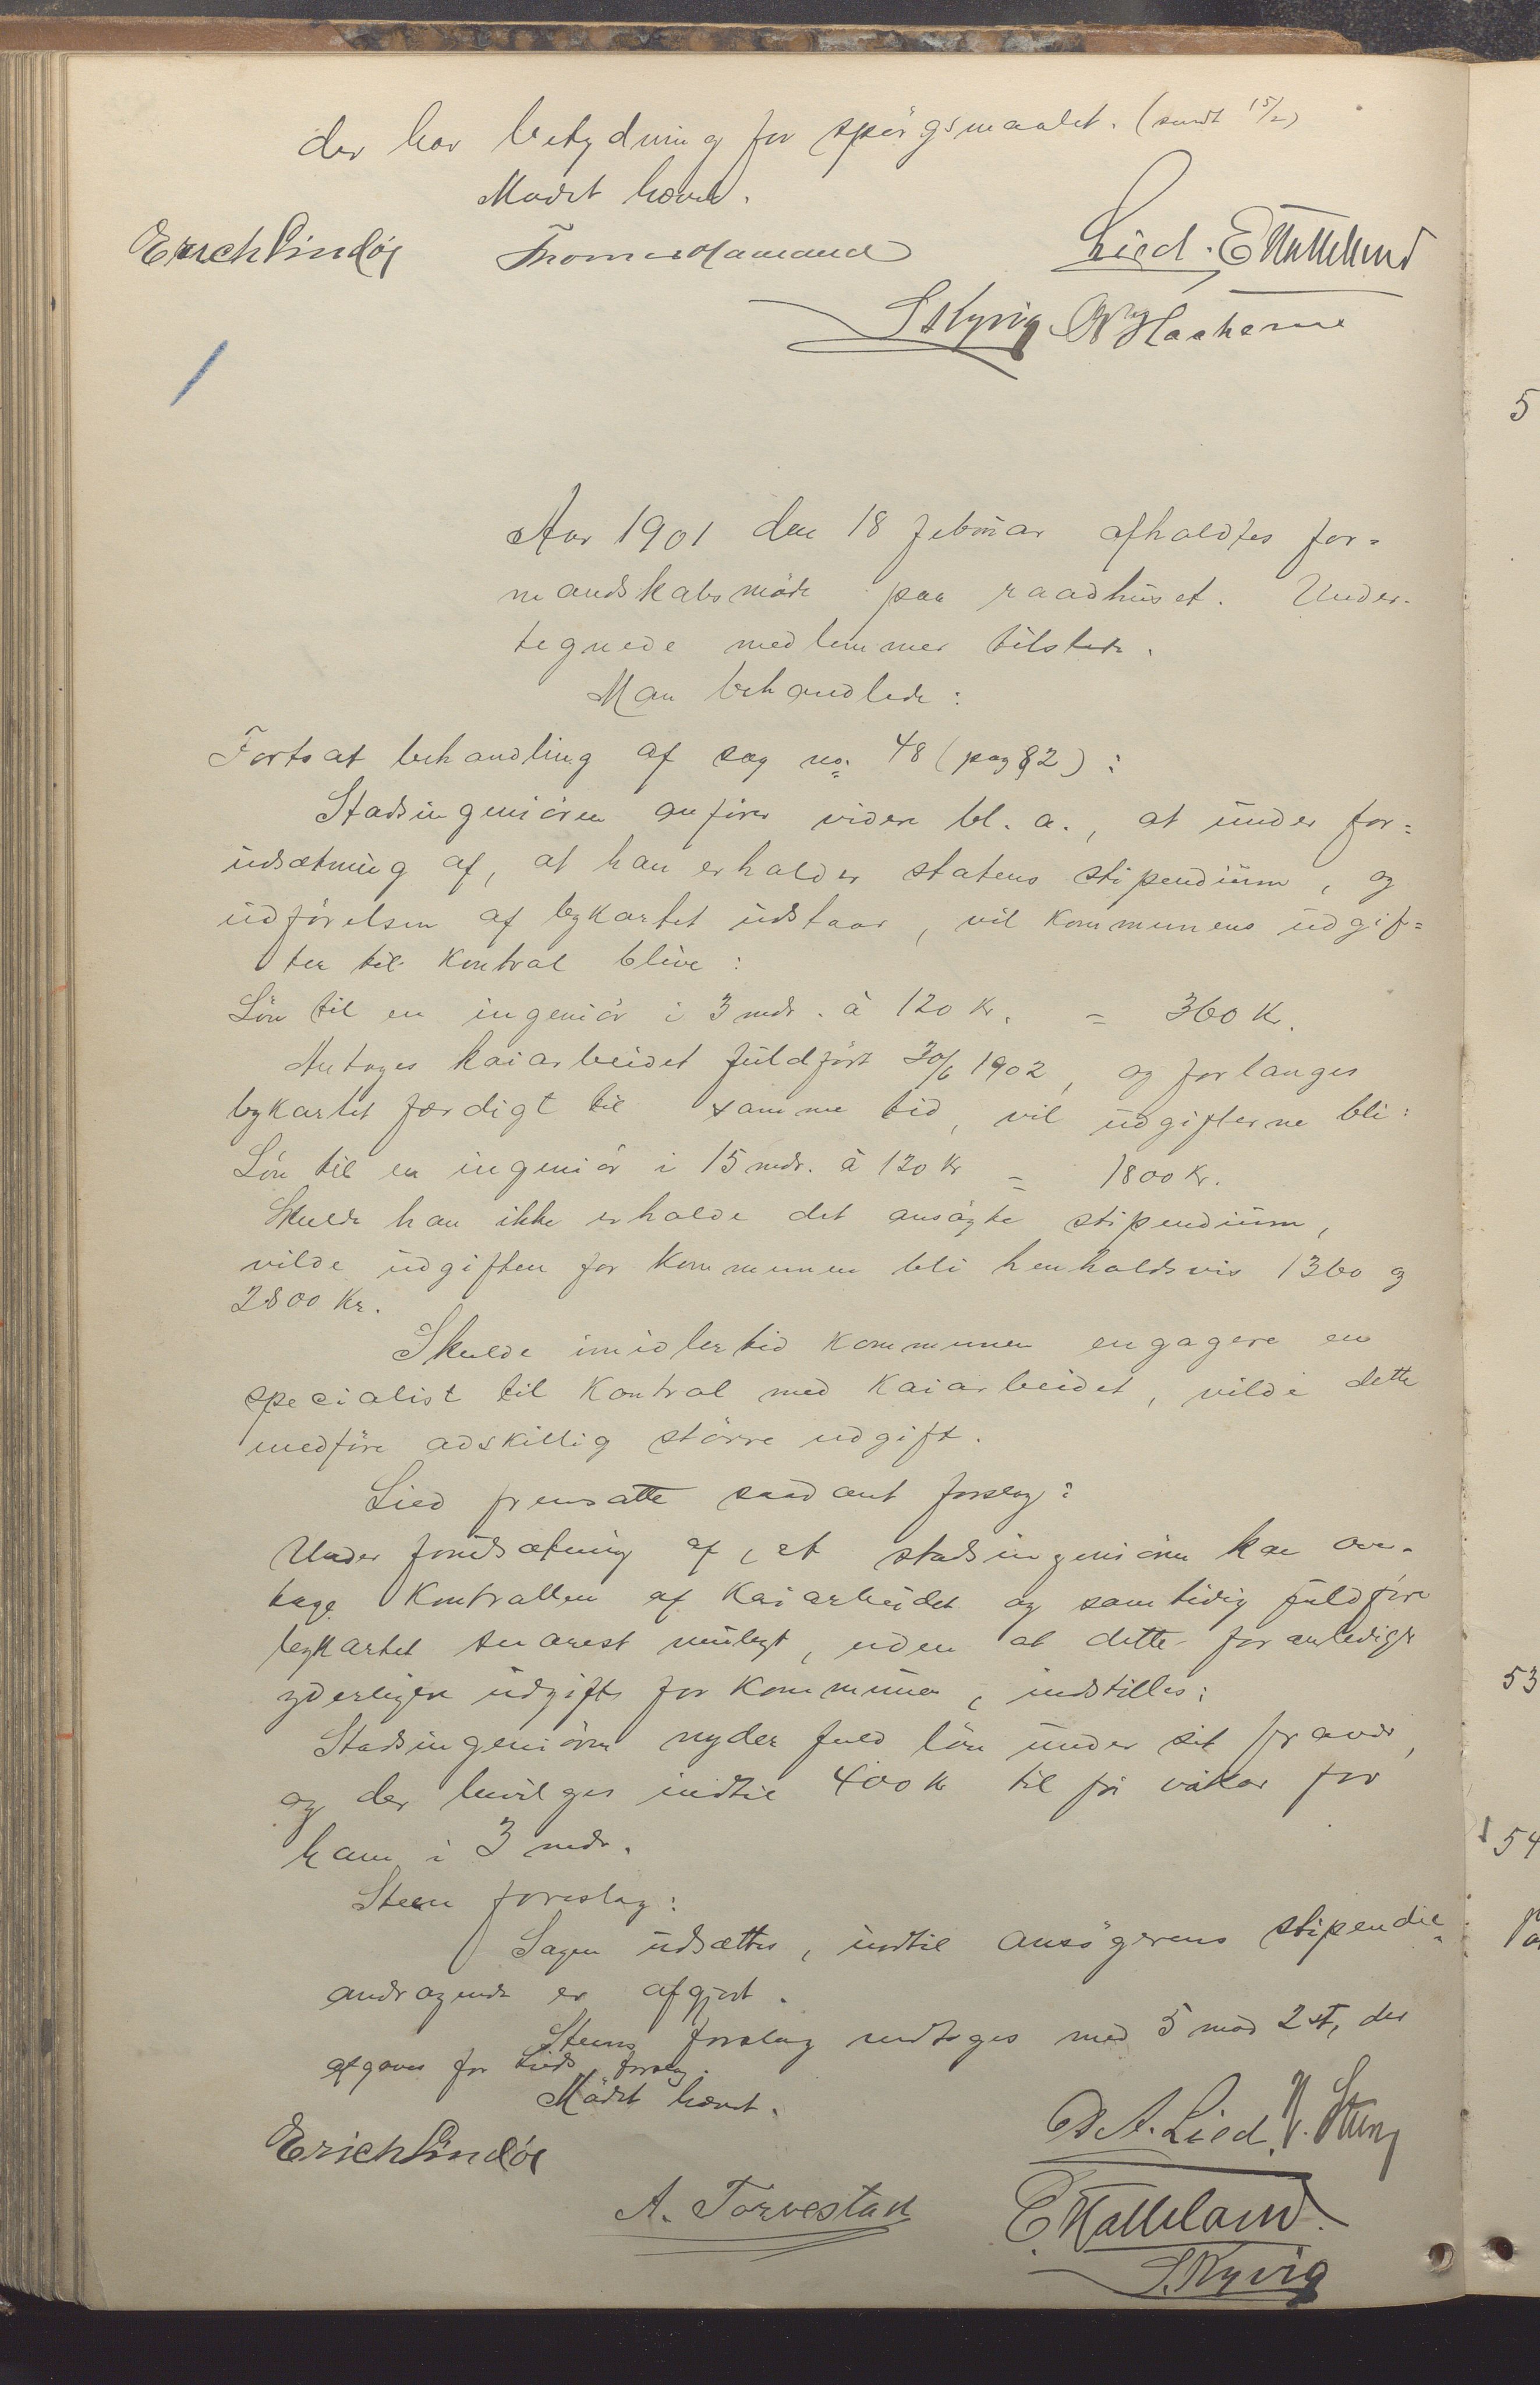 der har betydning for spörgsmaalet. (sendt 15/2)
Mödet hævet.
Erich Lindöe Lied. E Hatteland
S Kyvig
Aar 1901 den 18 februar afholdtes for=
mandskabsmöde paa raadhuset. Under-
tegnede medlemmer tilstede.
Man behandlede:
Fortsat behandling af sag no. 48 (pag 82):
Stadsingeniören anförer videre bl. a., at under for=
udsætning af, at han erholder statens stipendium, og
udförelsen af bykartet udstaar, vil kommunens udgif=
ter til kontrol blive:
Lön til en ingeniör i 3 mdr. à 120 kr. = 360 kr.
Antages kaiarbeidet fuldfört 30/6 1902, og forlanges
bykartet færdigt til samme tid, vil udgifterne bli:
Lön til en ingeniör i 15 mdr. à 120 kr = 1800 kr.
Skulde han ikke erholde det ansögte stipendium,
vilde udgiften for kommunen bli henholdsvis 1360 og
2800 kr.
Skulde imidlertid kommunen engagere en
specialist til kontrol med kaiarbeidet, vilde dette
medföre adskillig större udgift.
Lied fremsatte saadant forslag:
Under forudsætning af, at stadsingeniören kan over-
tage kontrollen af kaiarbeidet og samtidig fuldföre
bykartet snarest muligt, uden at dette foranlediger
yderligere udgifter for kommunen, indstilles:
Stadsingeniören nyder fuld lön under sit fravær,
og der bevilges indtil 400 kr til en vikar for
ham i 3 mdr.
Steen foreslog:
Sagen udsættes, indtil ansögerens stipendie-
andragende er afgjort.
Steens forslag vedtoges med 5 mod 2 st, der
afgaves for Lieds forslag.
Mödet hævet.
Erich Lindöe A. Lied. Steen
A. Torvestad E. Hatteland.
S. Kyvig
5
53
54